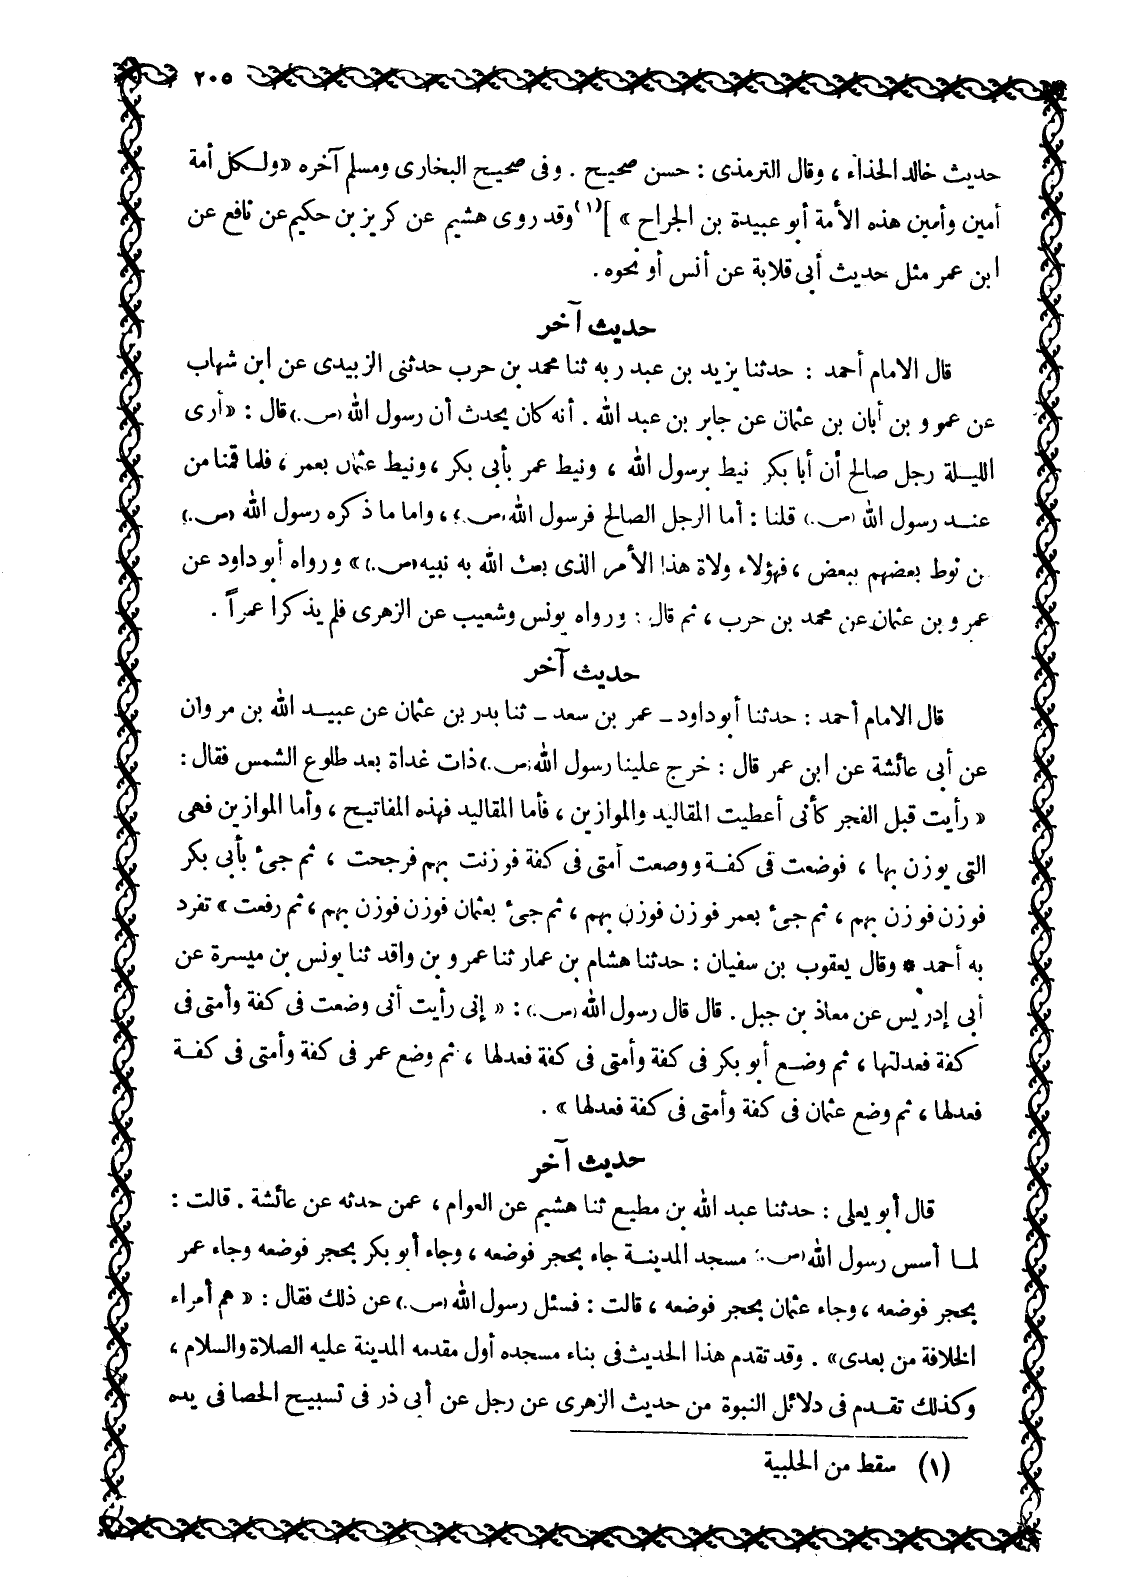 ٢٠٥
حديث خالد الحذاء ، وقال الترمذى : حسن صحيح . وفى صحيح البخارى ومسلم آخره «ولكل أمة
أمين وأمين هذه الأمة أبو عبيدة بن الجراح » ](١) وقد روى هشيم عن كريز بن حكيم عن نافع عن
ابن عمر مثل حديث أبى قلابة عن أنس أو نحوه .
حديث آخر
قال الامام أحمد : حدثنا يزيد بن عبد ربه ثنا محمد بن حرب حدثنى الزبيدى عن ابن شهاب
عن عمرو بن أبان بن عثمان عن جابر بن عبد الله . أنه كان يحدث أن رسول الله (ص.) قال : «أرى
الليلة رجل صالح أن أبا بكر نيط برسول الله ، ونيط عمر بأبى بكر ، ونيط عثمان بعمر ، فلما قمنا من
عند رسول الله (ص.) قلنا : أما الرجل الصالح فرسول الله (ص.) ، واما ما ذكره رسول الله (ص.)
من نوط بعضهم ببعض ، فهؤلاء ولاة هذا الأمر الذى بعث الله به نبيه (ص.) » ورواه أبو داود عن
عمرو بن عثمان عن محمد بن حرب ، ثم قال : ورواه يونس وشعيب عن الزهرى فلم يذكرا عمراً .
حديث آخر
قال الامام أحمد : حدثنا أبو داود ـ عمر بن سعد ـ ثنا بدر بن عثمان عن عبيد الله بن مروان
عن أبى عائشة عن ابن عمر قال : خرج علينا رسول الله (ص.) ذات غداة بعد طلوع الشمس فقال :
« رأيت قبل الفجر كأنى أعطيت المقاليد والموازين ، فأما المقاليد فهذه المفاتيح ، وأما الموازين فهى
التى يوزن بها ، فوضعت فى كفة ووضعت أمتى فى كفة فوزنت بهم فرجحت ، ثم جىء بأبى بكر
فوزن فوزن بهم ، ثم جىء بعمر فوزن فوزن بهم ، ثم جىء بعثمان فوزن فوزن بهم ، ثم رفعت » تفرد
به أحمد * وقال يعقوب بن سفيان : حدثنا هشام بن عمار ثنا عمرو بن واقد ثنا يونس بن ميسرة عن
أبى إدريس عن معاذ بن جبل . قال قال رسول الله (ص.) : « إنى رأيت أنى وضعت فى كفة وأمتى فى
كفة فعدلتها ، ثم وضع أبو بكر فى كفة وأمتى فى كفة فعدلها ، ثم وضع عمر فى كفة وأمتى فى كفة
فعدلها ، ثم وضع عثمان فى كفة وأمتى فى كفة فعدلها » .
حديث آخر
قال أبو يعلى : حدثنا عبد الله بن مطيع ثنا هشيم عن العوام ، عمن حدثه عن عائشة . قالت :
لما أسس رسول الله (ص.) مسجد المدينة جاء بحجر فوضعه ، وجاء أبو بكر بحجر فوضعه وجاء عمر
بحجر فوضعه ، وجاء عثمان بحجر فوضعه ، قالت : فسئل رسول الله (ص.) عن ذلك فقال : « هم أمراء
الخلافة من بعدى » . وقد تقدم هذا الحديث فى بناء مسجده أول مقدمه المدينة عليه الصلاة والسلام ،
وكذلك تقدم فى دلائل النبوة من حديث الزهرى عن رجل عن أبى ذر فى تسبيح الحصا فى يده
(١) سقط من الحلبية